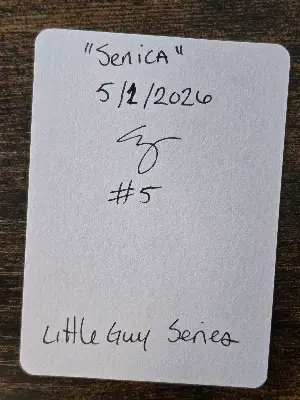 "Senica"
5/1/2026
#5
Little Guy Series